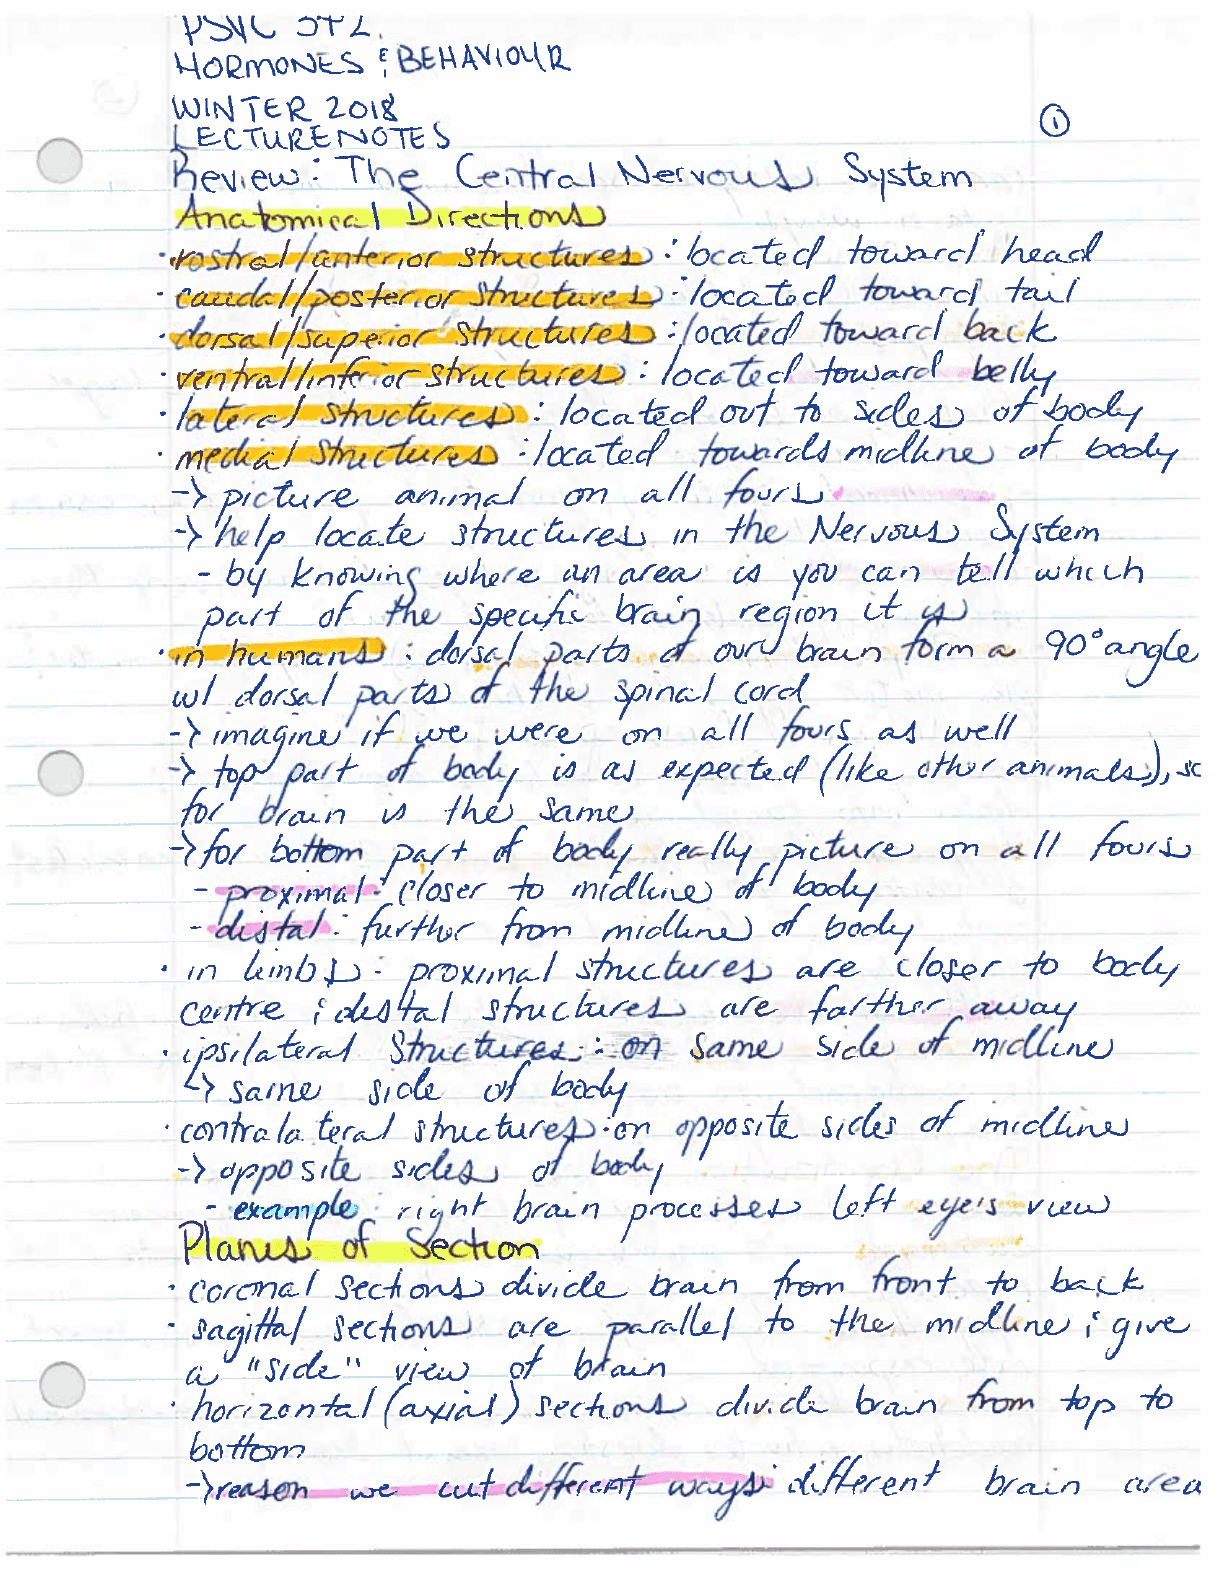 PSYC 342.
HORMONES & BEHAVIOUR
WINTER 2018
LECTURE NOTES
①
Review: The Central Nervous System
Anatomical Directions
· rostral/anterior structures: located toward head
· caudal/posterior structures: located toward tail
· dorsal/superior structures: located toward back
· ventral/inferior structures: located toward belly
· lateral structures: located out to sides of body
· medial structures: located towards midline of body
-> picture animal on all fours
-> help locate structures in the Nervous System
- by knowing where an area is you can tell which
part of the specific brain region it is
· in humans: dorsal parts of our brain form a 90° angle
w/ dorsal parts of the spinal cord
-> imagine if we were on all fours as well
-> top part of body is as expected (like other animals), so
for brain is the same
-> for bottom part of body really picture on all fours
- proximal: closer to midline of body
- distal: further from midline of body
· in limbs: proximal structures are closer to body
centre & distal structures are farther away
· ipsilateral structures: on same side of midline
↳ same side of body
· contralateral structures: on opposite sides of midline
-> opposite sides of body
- example: right brain processes left eye's view
Planes of Section
· coronal sections divide brain from front to back
· sagittal sections are parallel to the midline & give
a "side" view of brain
· horizontal (axial) sections divide brain from top to
bottom
-> reason we cut different ways: different brain area